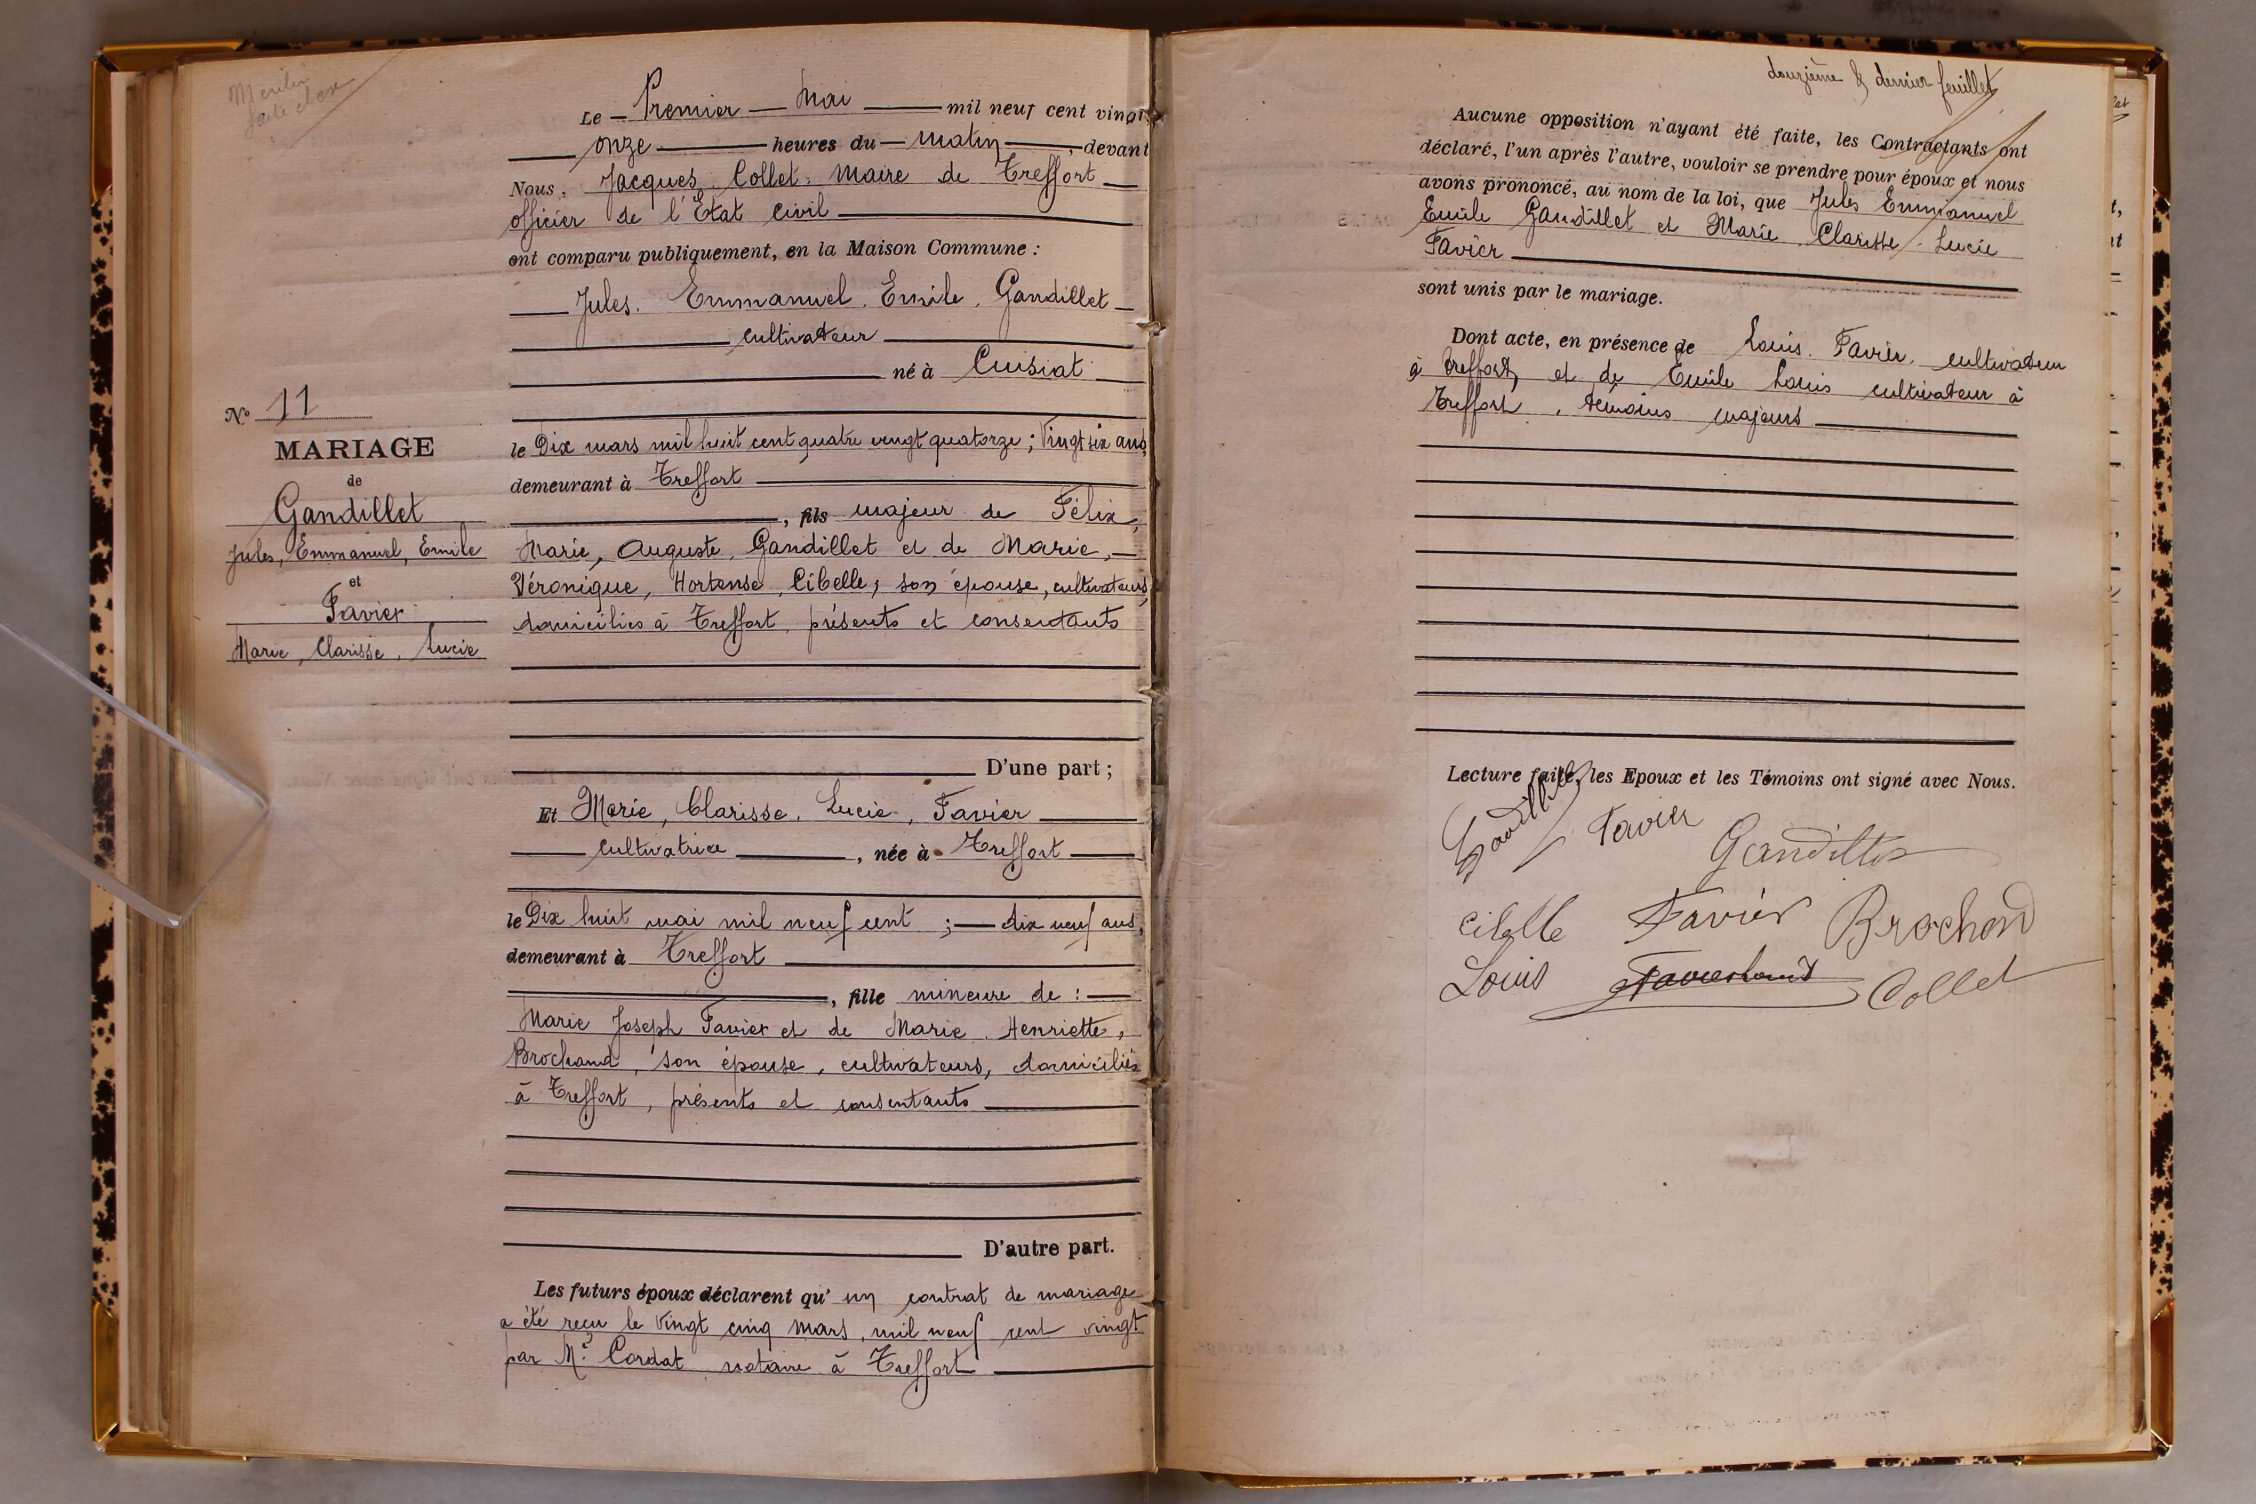 Le Premier Mai mil neuf cent vingt
onze heures du matin, devant
Nous, Jacques Collet, Maire de Treffort
officier de l'Etat civil
ont comparu publiquement, en la Maison Commune :
Jules. Emmanuel. Emile. Gandillet
cultivateur
né à Cuisiat
le Dix mars mil huit cent quatre vingt quatorze ; Vingt six ans,
demeurant à Treffort
, fils majeur de Félix,
Marie, Auguste, Gandillet et de Marie,
Véronique, Hortense, Cibelle, son épouse, cultivateurs,
domiciliés à Treffort, présents et consentants
D'une part ;
Et Marie, Clarisse, Lucie, Favier
cultivatrice, née à Treffort
le Dix huit mai mil neuf cent ; dix neuf ans,
demeurant à Treffort
, fille mineure de :
Marie Joseph Favier et de Marie. Henriette,
Brochand, son épouse, cultivateurs, domiciliés
à Treffort, présents et consentants
D'autre part.
Les futurs époux déclarent qu'un contrat de mariage
a été reçu le Vingt cinq Mars, mil neuf cent vingt
par Me Cordat notaire à Treffort
No 11
MARIAGE
de
Gandillet
Jules, Emmanuel, Emile
et
Favier
Marie, Clarisse, Lucie
douzième & dernier feuillet
Aucune opposition n'ayant été faite, les Contractants ont
déclaré, l'un après l'autre, vouloir se prendre pour époux et nous
avons prononcé, au nom de la loi, que Jules Emmanuel
Emile Gandillet et Marie Clarisse Lucie
Favier
sont unis par le mariage.
Dont acte, en présence de Louis. Favier. cultivateur
à Treffort, et de Emile Louis cultivateur à
Treffort, témoins majeurs
Lecture faite, les Epoux et les Témoins ont signé avec Nous.
Gandillet Favier Gandillet
Cibelle Favier Brochand
Louis Favier Louis Collet